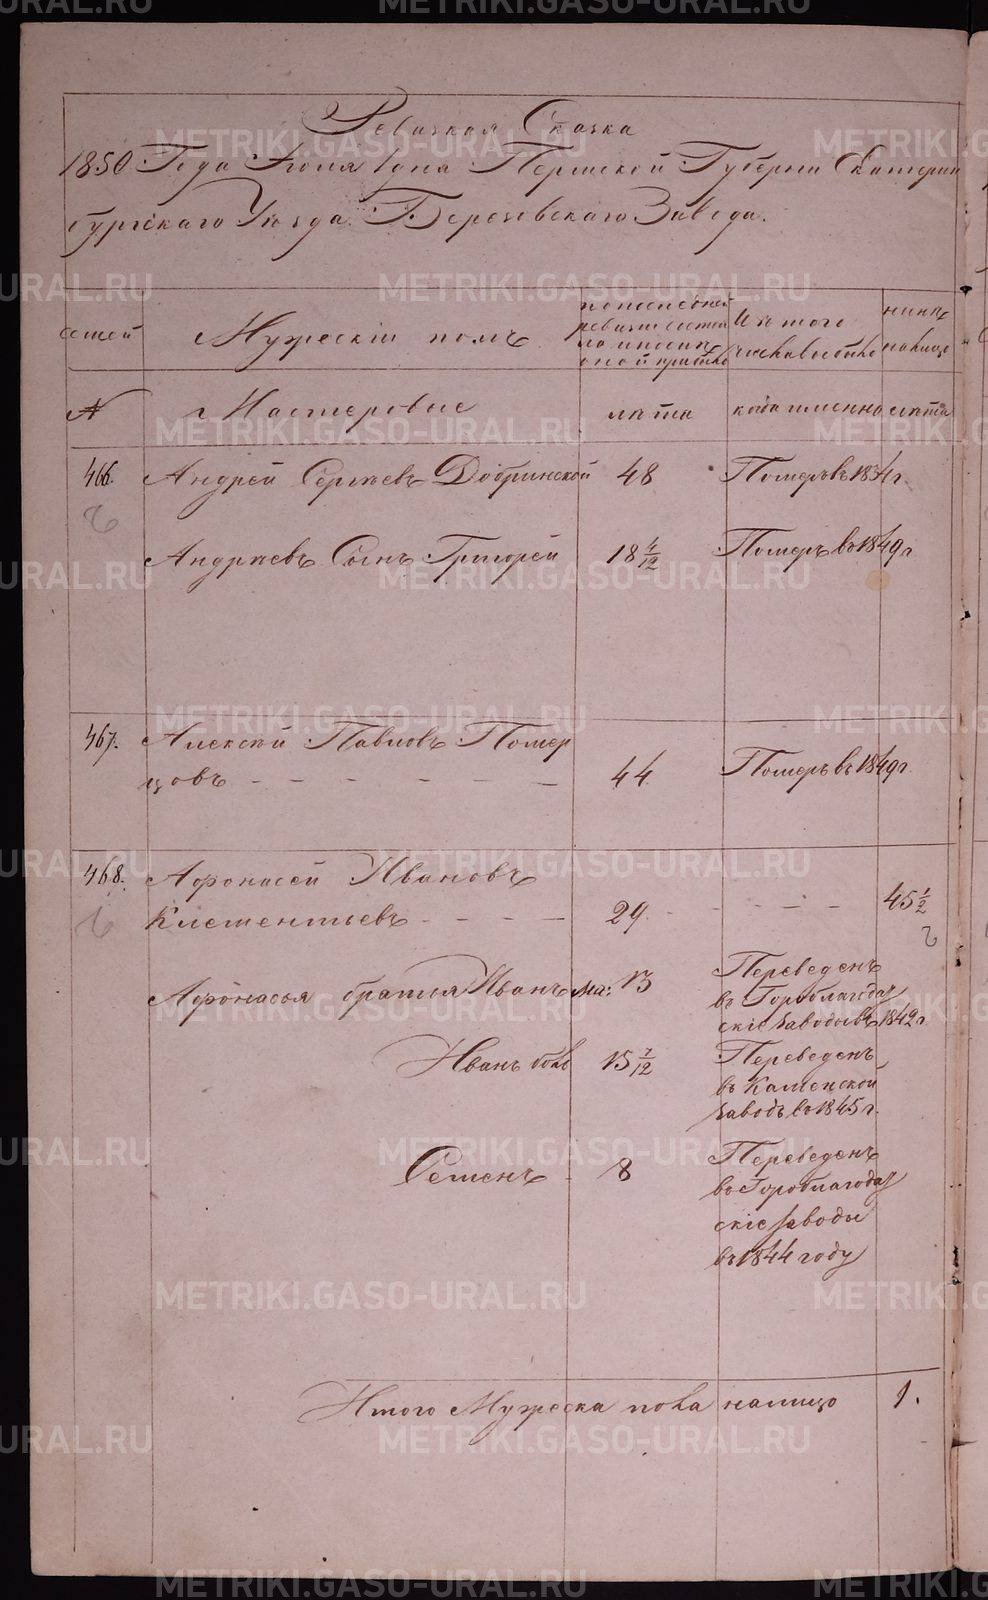 Ревизкая Сказка
1850 Года Июня 1 дня Пермской Губерни Екатерин
бургскаго Уѣзда Березовскаго Завода.
семей
Мужескiй полъ
по последней
ревизи состоя
ло
Изъ того
числа выбыло
нынѣ
налицо
№
Мастеровые
лѣта
когда именно
лѣта
466.
Андрей Сергѣевъ Добринской
48
Померъ въ 1834 г.
Андрѣевъ Сынъ Григорей
18 4/12
Померъ въ 1849 г
467.
Алексѣй Павловъ Помер
цовъ - - - - - -
44
Померъ въ 1849 г
468.
Афонасей Ивановъ
Клементьевъ - - - -
29 - - - - -
45 1/2
Афонасья братья Иванъ ма: 13
Переведенъ
въ Гороблагодат
скiе заводы въ 1842 г
Иванъ болъ
15 7/12
Переведенъ
въ Каменской
заводъ въ 1845 г.
Семенъ - 8
Переведенъ
въ Гороблагодат
скiе заводы
въ 1844 году
Итого Мужеска пола налицо
1.
METRIKI.GASO-URAL.RU